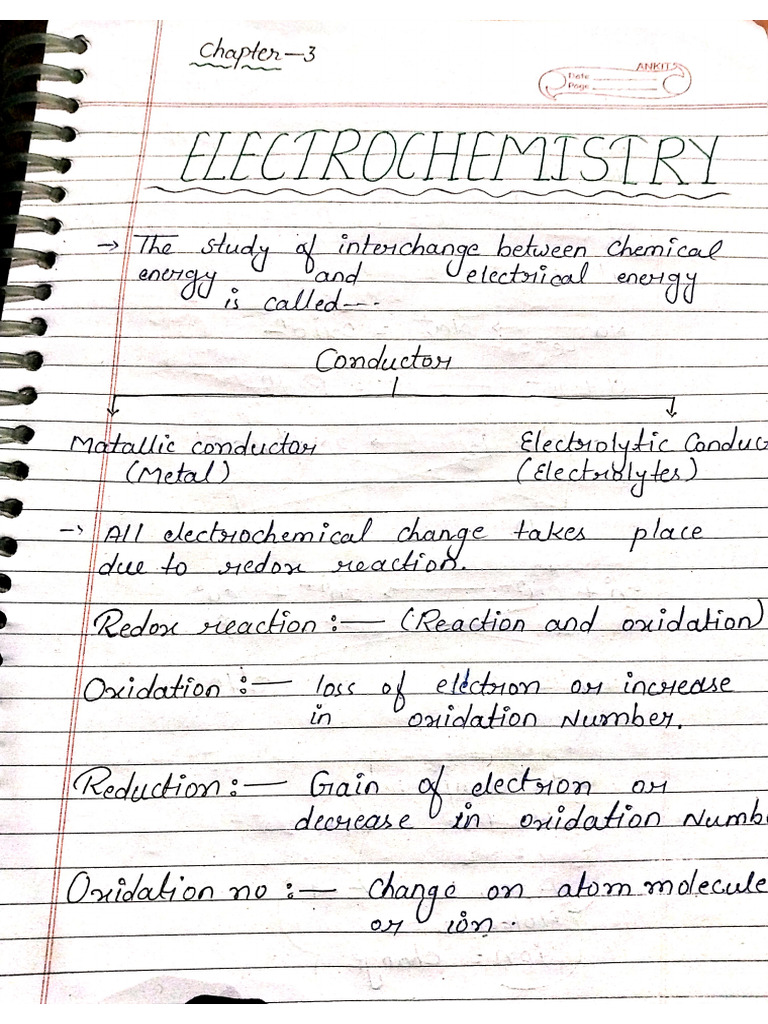 Chapter-3
ANKIT
Date
Page
ELECTROCHEMISTRY
→ The study of interchange between Chemical
energy and electrical energy
is called---
Conductor
Matallic conductor
Electrolytic Conduc
(Metal)
(Electrolytes)
→ All electrochemical change takes place
due to redox reaction.
Redox reaction :— (Reaction and oxidation)
Oxidation :— loss of electron or increase
in oxidation Number.
Reduction :— Gain of electron or
decrease in oxidation Numb
Oxidation no :— Change on atom molecule
or ion..